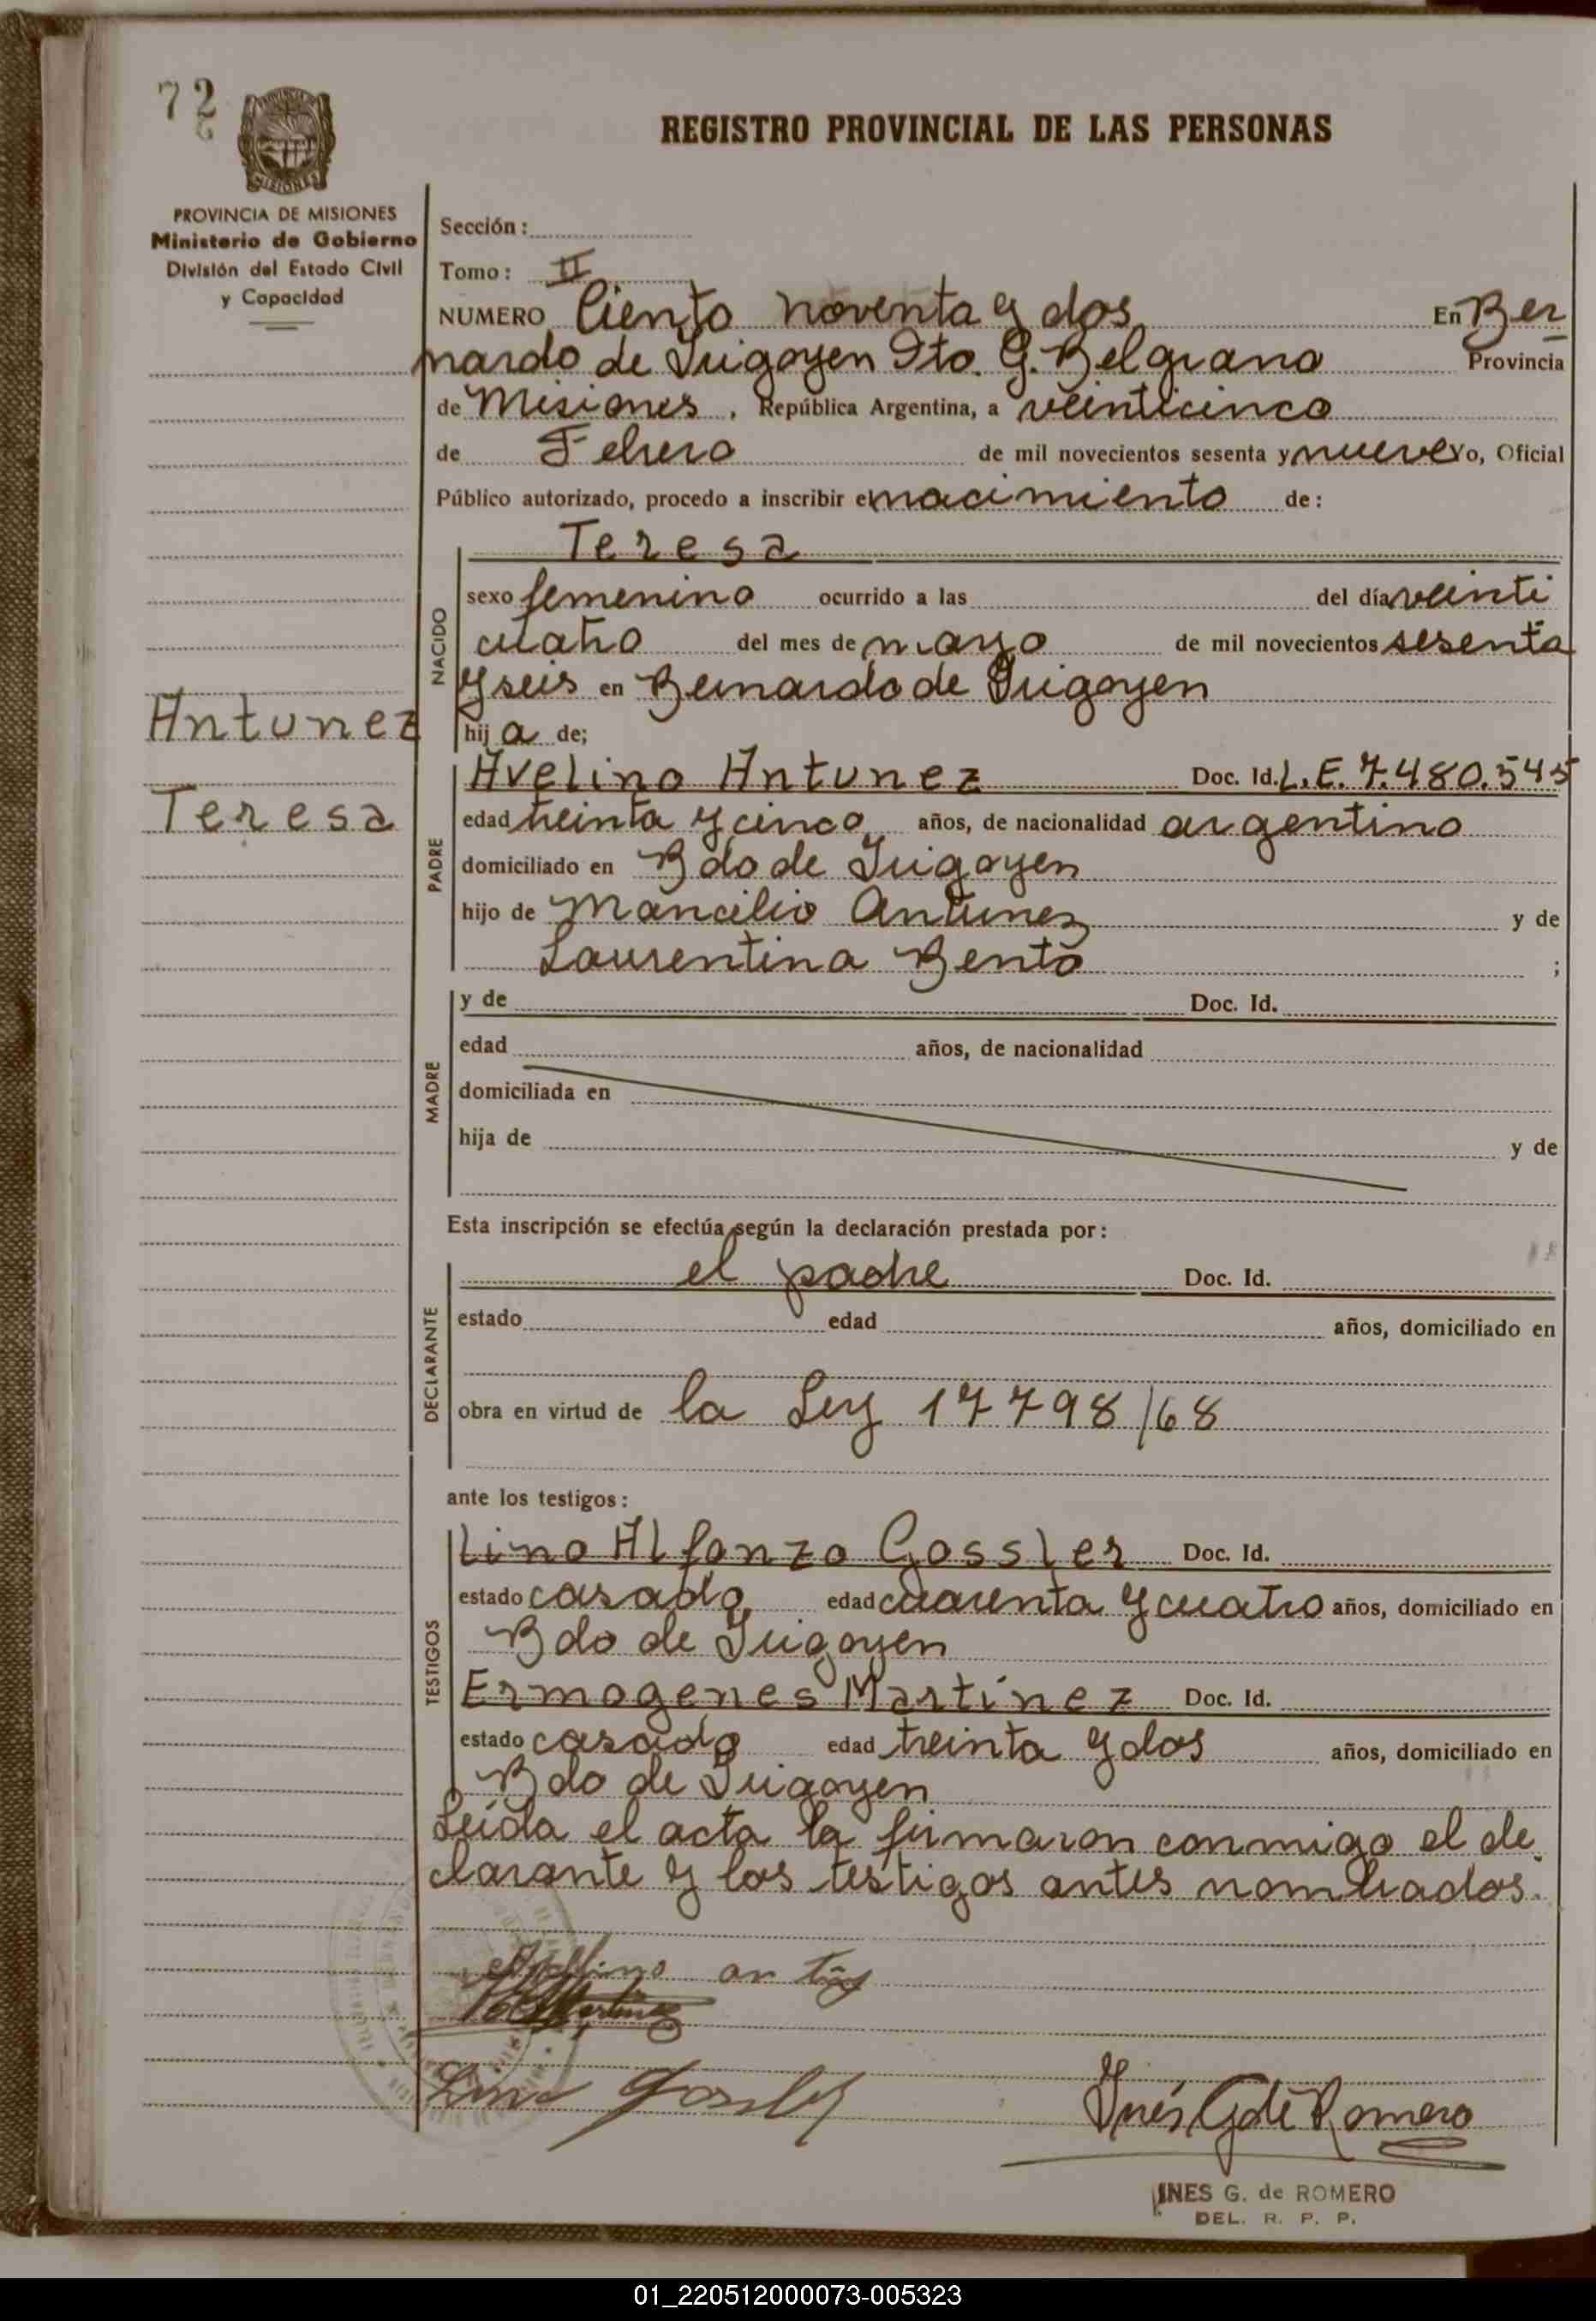 72
REGISTRO PROVINCIAL DE LAS PERSONAS
PROVINCIA DE MISIONES
Ministerio de Gobierno
División del Estado Civil
y Capacidad
Sección :
Tomo : II
NUMERO Ciento noventa y dos En Ber
nardo de Irigoyen Dto. G. Belgrano Provincia
de Misiones, República Argentina, a veinticinco
de Febrero de mil novecientos sesenta y nueve Yo, Oficial
Público autorizado, procedo a inscribir el nacimiento de :
Teresa
NACIDO
sexo femenino ocurrido a las del día veinti
cuatro del mes de mayo de mil novecientos sesenta
y seis en Bernardo de Irigoyen
Antunez
Teresa
hija de;
PADRE
Avelino Antunez Doc. Id. L.E. 7.480.545
edad treinta y cinco años, de nacionalidad argentino
domiciliado en Bdo de Irigoyen
hijo de Mancilio Antunez y de
Laurentina Bento ;
MADRE
y de Doc. Id.
edad años, de nacionalidad
domiciliada en
hija de y de
Esta inscripción se efectúa según la declaración prestada por :
DECLARANTE
el padre Doc. Id.
estado edad años, domiciliado en
obra en virtud de la Ley 17798/68
ante los testigos :
TESTIGOS
Lino Alfonzo Gossler Doc. Id.
estado casado edad cuarenta y cuatro años, domiciliado en
Bdo de Irigoyen
Ermogenes Martinez Doc. Id.
estado casado edad treinta y dos años, domiciliado en
Bdo de Irigoyen
Leída el acta la firmaron conmigo el de
clarante y los testigos antes nombrados.
Martinez
Lino Gossler
Inés G de Romero
INES G. de ROMERO
DEL. R. P. P.
01_220512000073-005323